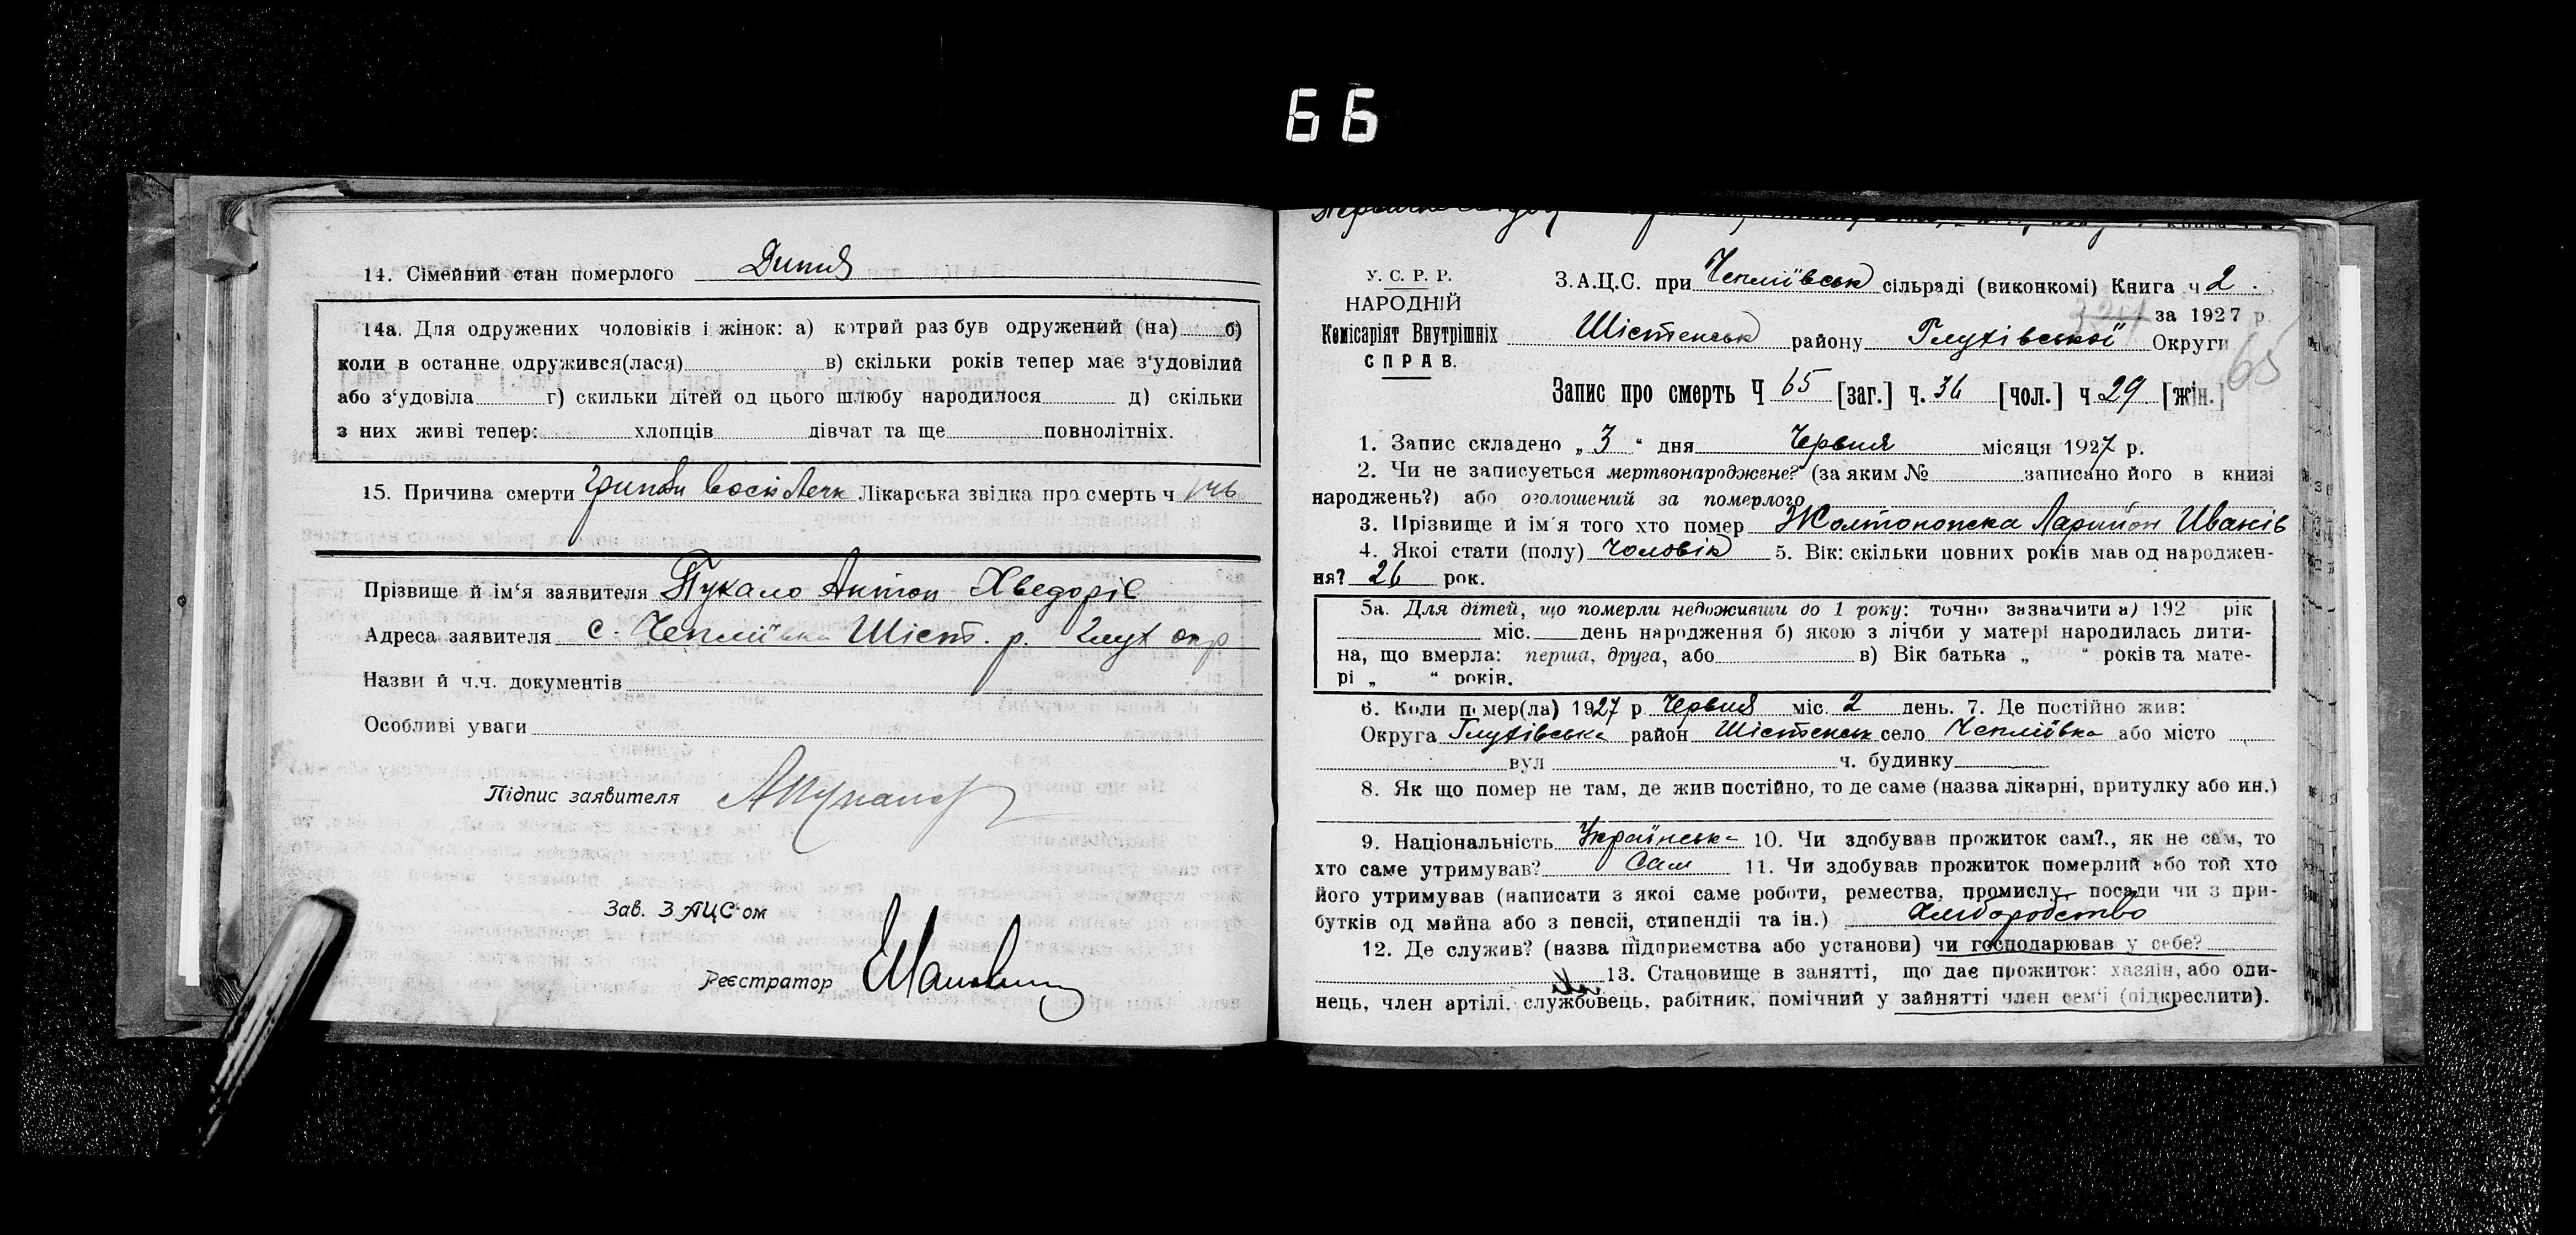 66
14. Сімейний стан померлого Дитя
14а. Для одружених чоловіків і жінок: а) котрий раз був одружений (на) б)
коли в останне одружився(лася) в) скільки років тепер має з'удовілий
або з'удовіла г) скильки дітей од цього шлюбу народилося д) скільки
з них живі тепер: хлопців дівчат та ще повнолітніх.
15. Причина смерти Лікарська звідка про смерть ч 146
Прізвище й ім'я заявителя Пукало Антон Хведорів
Адреса заявителя с. Чепліївка Шіст. р. Глух окр
Назви й ч.ч. документів
Особливі уваги
Підпис заявителя
Зав. ЗАЦС'ом
Реєстратор
У. С. Р. Р.
НАРОДНІЙ
Комісаріят Внутрішніх
СПРАВ.
З.А.Ц.С. при Чепліївськ сільраді (виконкомі) Книга ч 2.
за 1927 р.
Шістенськ району Глухівської Округи
65
Запис про смерть Ч 65 [заг.] ч. 36 [чол.] ч 29 [жін.]
1. Запис складено „ 3 “ дня Червня місяця 1927 р.
2. Чи не записується мертвонароджене? (за яким № записано його в книзі
народжень?) або оголошений за померлого
3. Прізвище й ім'я того хто помер Жолтоножска Ларийон Іванів
4. Якоі стати (полу) Чоловік 5. Вік: скільки повних років мав од народжен-
ня? 26 рок.
5а. Для дітей, що померли недоживши до 1 року: точно зазначити а) 192 рік
міс. день народження б) якою з лічби у матері народилась дити-
на, що вмерла: перша, друга, або в) Вік батька „ “ років та мате-
рі „ “ років.
6. Коли помер(ла) 1927 р Червня міс. 2 день. 7. Де постійно жив:
Округа Глухівська район Шістенськ село Чепліївка або місто
вул ч. будинку
8. Як що помер не там, де жив постійно, то де саме (назва лікарні, притулку або ин.)
9. Національність Українська 10. Чи здобував прожиток сам?., як не сам, то
хто саме утримував? Сам 11. Чи здобував прожиток померлий або той хто
його утримував (написати з якоі саме роботи, ремества, промислу посади чи з при-
бутків од майна або з пенсії, стипендії та ін.) Хліборобство
12. Де служив? (назва підприємства або установи) чи господарював у себе?
13. Становище в занятті, що дає прожиток: хазяін, або оди-
нець, член артілі, службовець, рабітник, помічний у зайнятті член сем'ї (підкреслити).